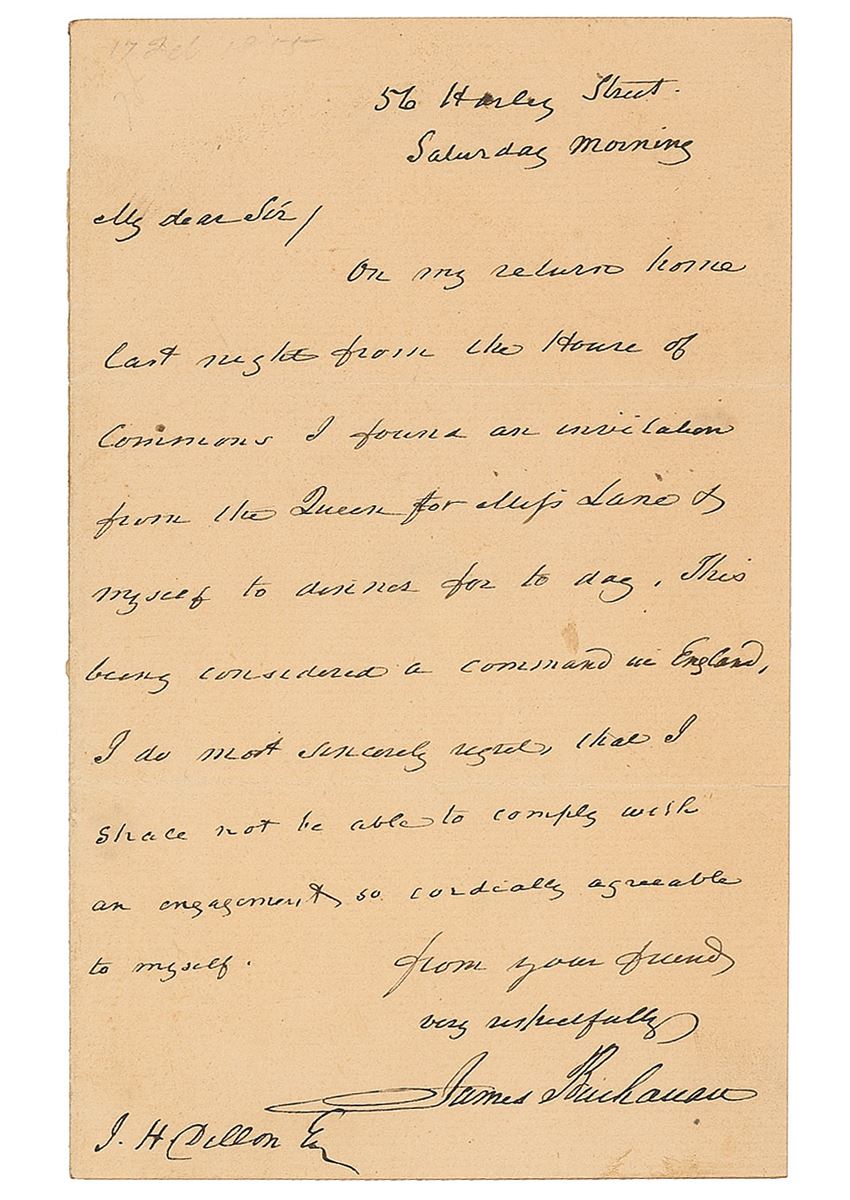 17 Feb 1855
56 Harley Street.
Saturday Morning
My dear Sir/
On my return home
last night from the House of
Commons I found an invitation
from the Queen for Miss Lane &
myself to dinner for to day. This
being considered a command in England,
I do most sincerely regret, that I
shall not be able to comply with
an engagement, so cordially agreeable
to myself.
from your friend
very respectfully
James Buchanan
J. H. Dillon Esq